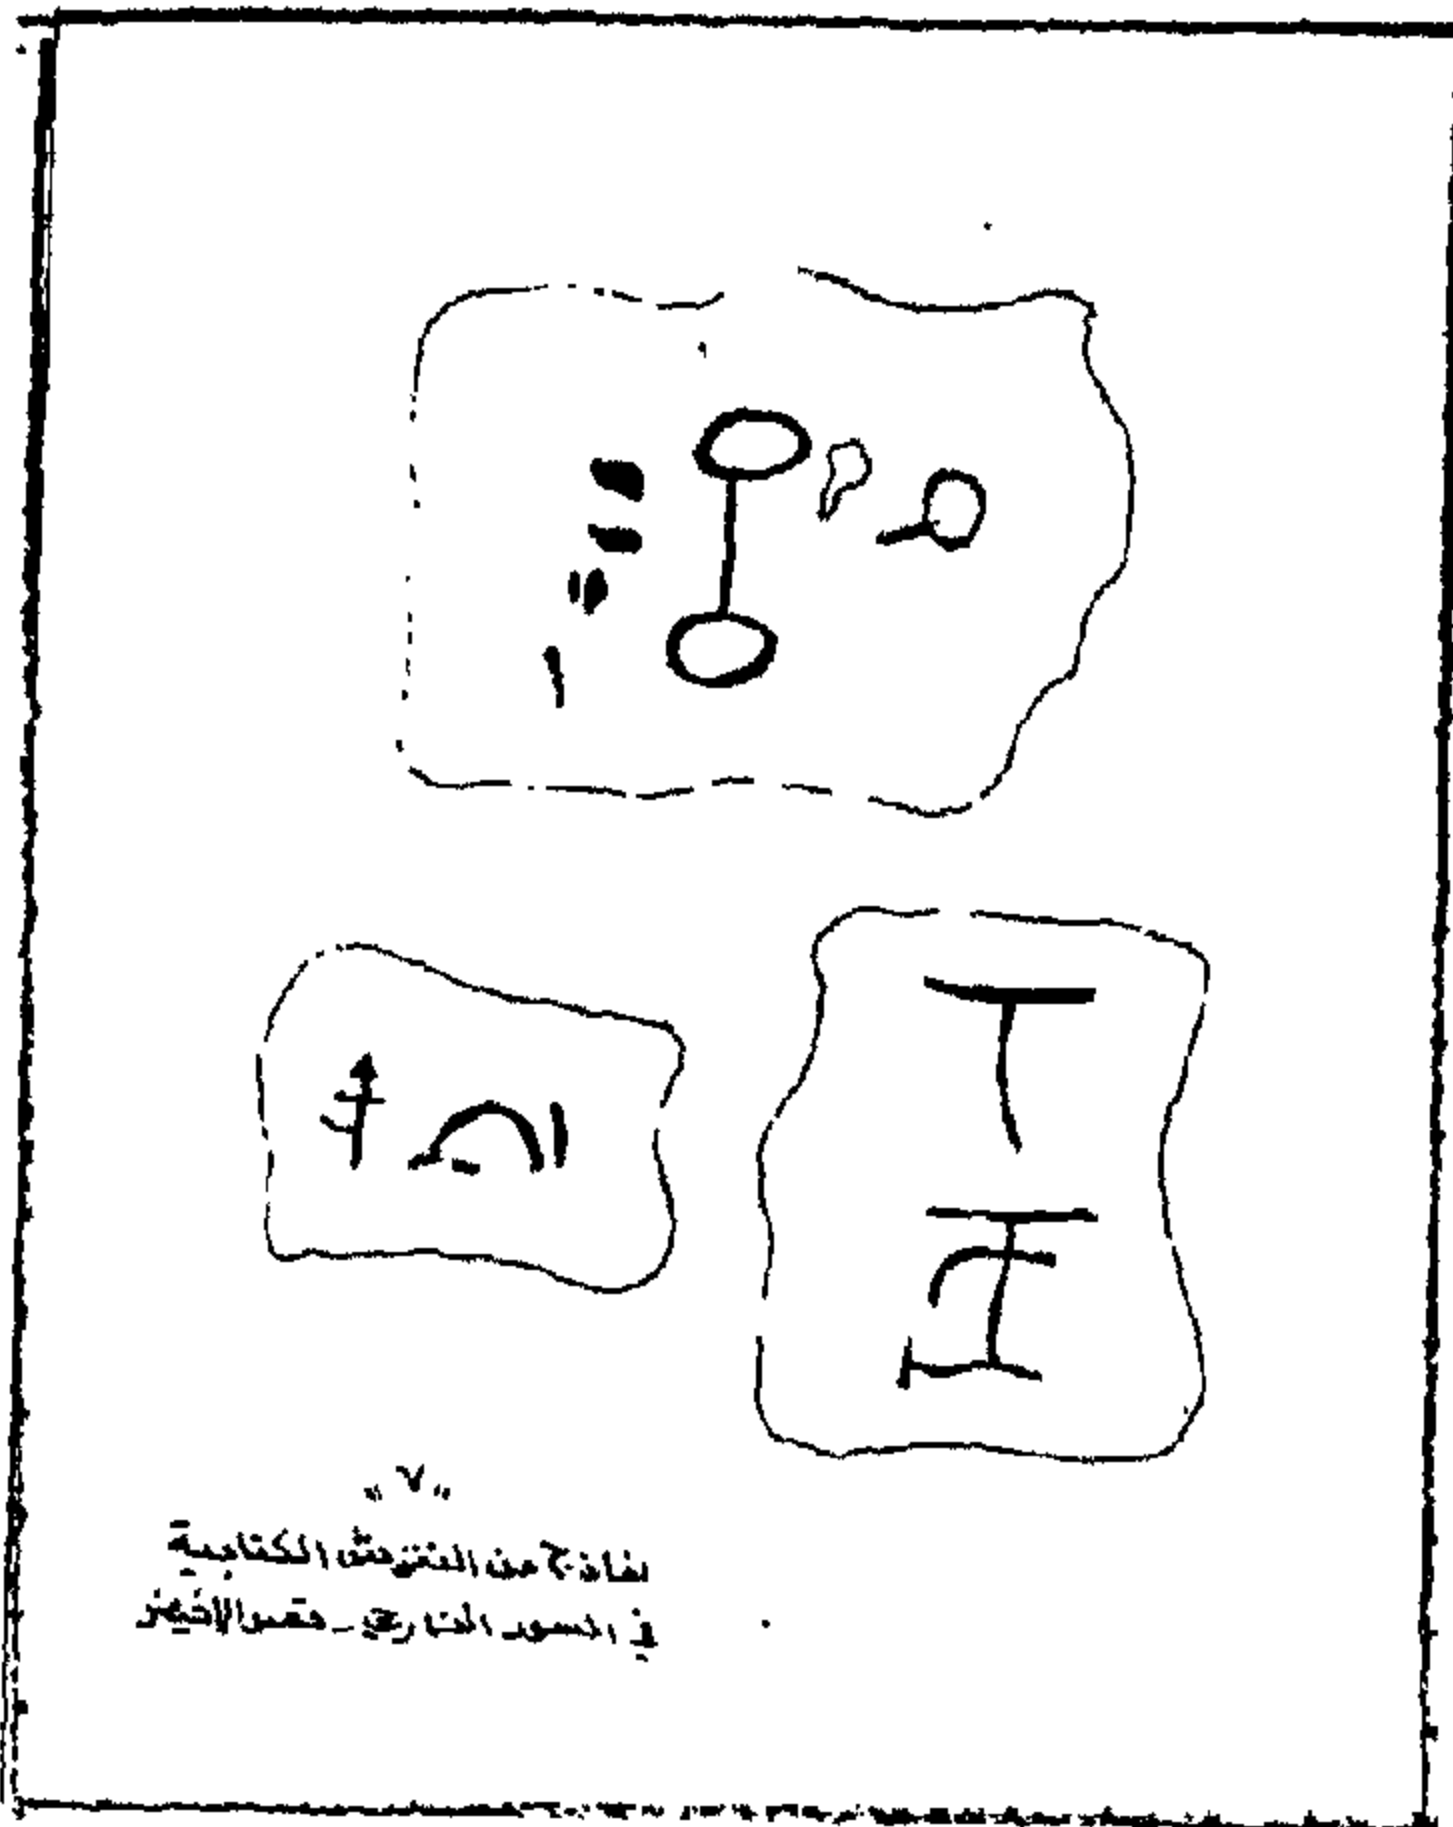 "٧"
نماذج من النقوش الكتابية
في السور الخارجي - قصر الأخيضر